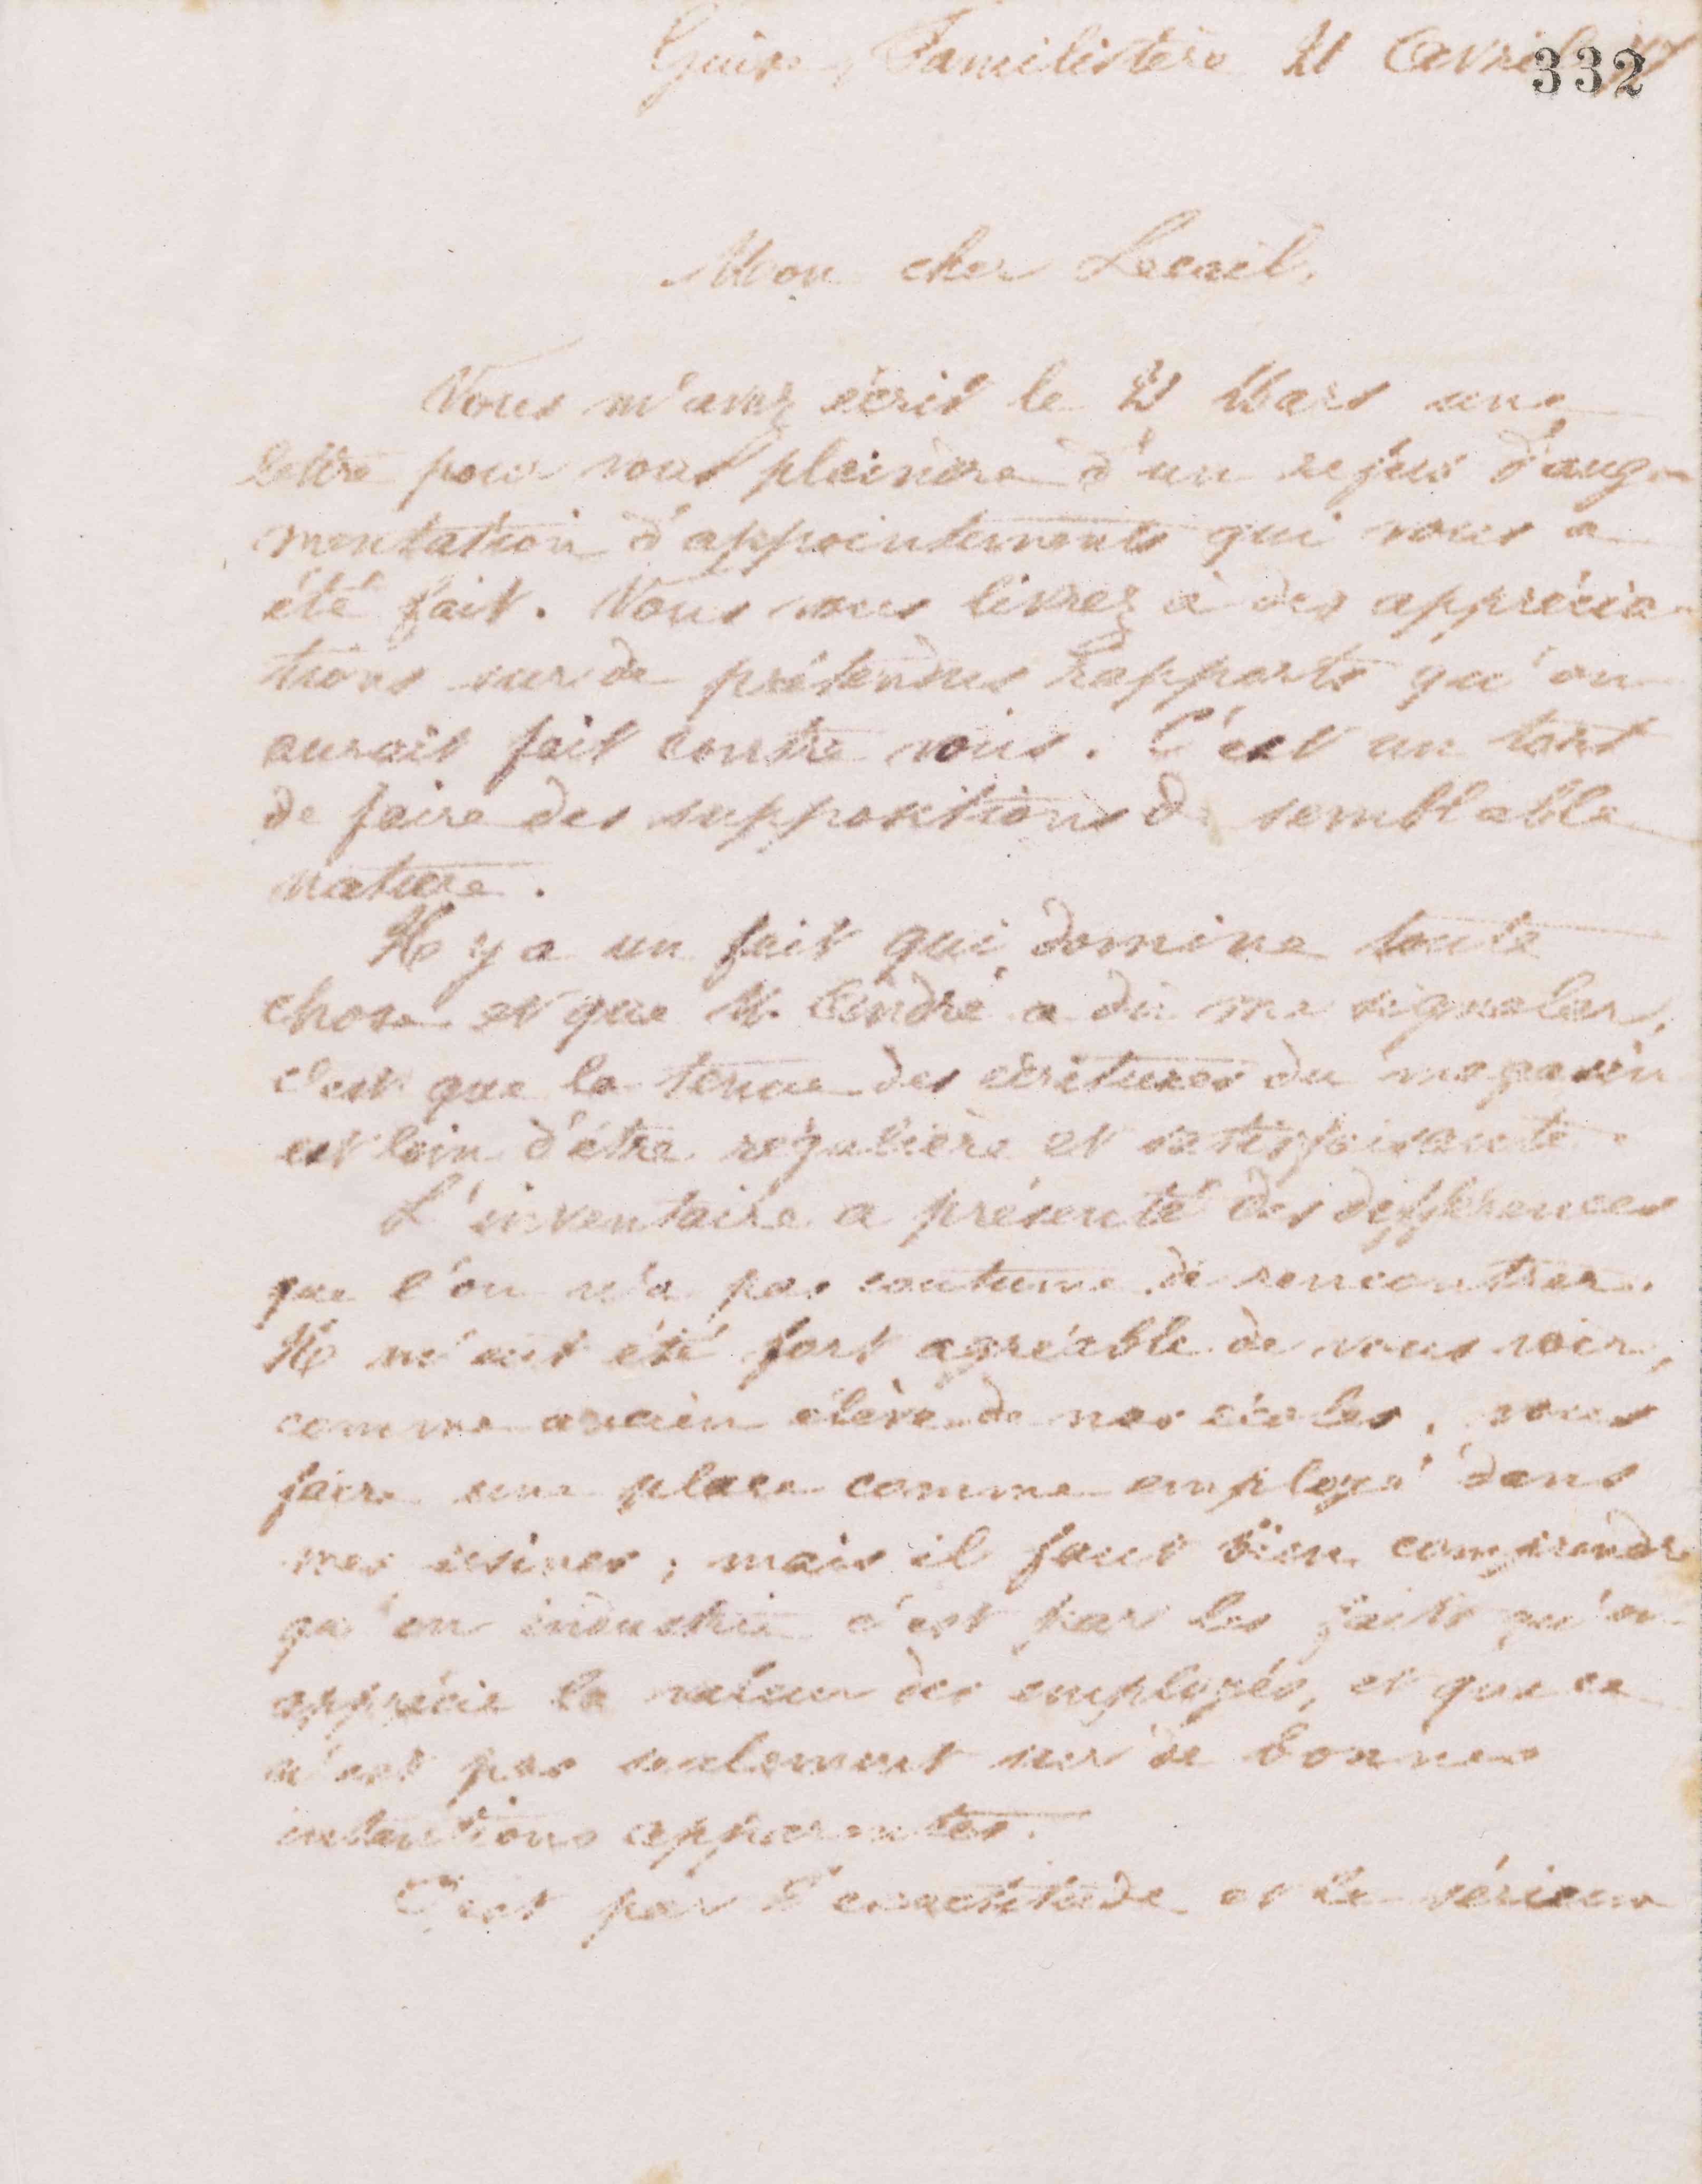 Guise, Familistère 21 Avril
332
Mon cher Lecail,
Vous m'avez écrit le 21 Mars une
lettre pour vous plaindre d'un refus d'aug-
mentation d'appointements qui vous a
été fait. Vous vous livrez à des apprécia-
tions sur de prétendus rapports qu'on
aurait fait contre vous. C'est un tort
de faire des suppositions de semblable
nature.
Il y a un fait qui domine toute
chose et que M. André a dû me signaler,
c'est que la tenue des écritures du magasin
est loin d'être régulière et satisfaisante.
L'inventaire a présenté des différences
que l'on n'a pas coutume de rencontrer.
Il m'eut été fort agréable de vous voir,
comme ancien élève de nos écoles, vous
faire une place comme employé dans
mes usines ; mais il faut bien comprendre
qu'en industrie c'est par les faits qu'on
apprécie la valeur des employés, et que ce
n'est pas seulement sur de bonnes
intentions apparentes.
C'est par l'exactitude et le sérieux